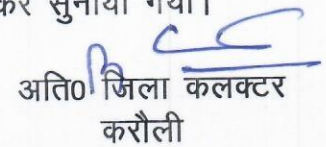 कर सुनाया गया।
अति0 जिला कलक्टर
करौली